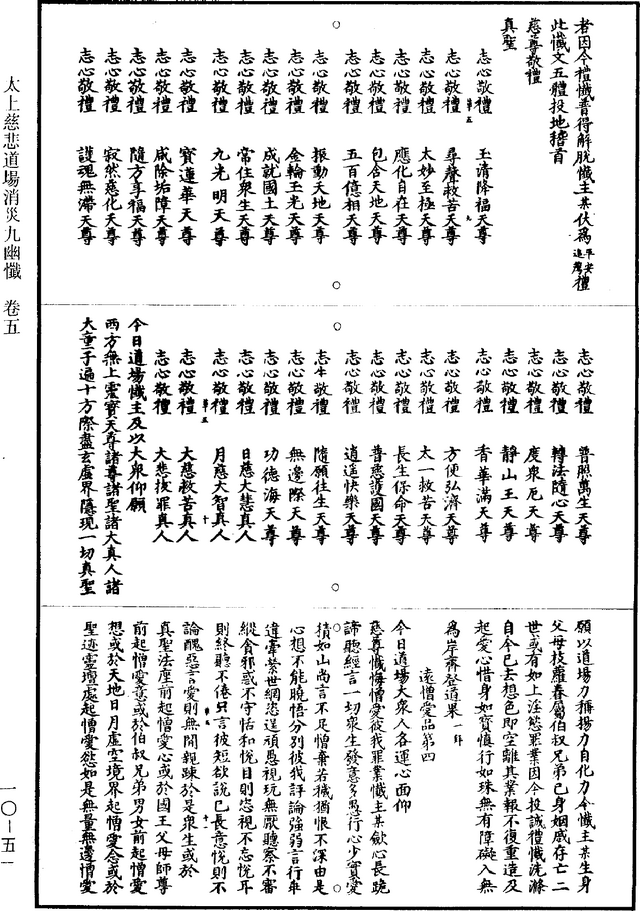 太上慈悲道場消災九幽懺 卷五
一〇－五一
者因今禮懺普得解脫懺主某伏爲平安追薦禮
此懺文五體投地稽首
慈尊敬禮
真聖
志心敬禮 玉清降福天尊
第五 九
志心敬禮 尋聲救苦天尊
志心敬禮 太妙至極天尊
志心敬禮 應化自在天尊
志心敬禮 包含天地天尊
志心敬禮 五百億相天尊
志心敬禮 振動天地天尊
志心敬禮 金輪王光天尊
志心敬禮 成就國土天尊
志心敬禮 常住衆生天尊
志心敬禮 九光明天尊
志心敬禮 寶蓮華天尊
志心敬禮 咸除垢障天尊
志心敬禮 隨方享福天尊
志心敬禮 寂然慈化天尊
志心敬禮 護魂無滯天尊
志心敬禮 普照萬生天尊
志心敬禮 轉法隨心天尊
志心敬禮 度衆厄天尊
志心敬禮 靜山王天尊
志心敬禮 香華滿天尊
志心敬禮 方便弘濟天尊
志心敬禮 太一救苦天尊
志心敬禮 長生保命天尊
志心敬禮 普慈護國天尊
志心敬禮 逍遙快樂天尊
志心敬禮 隨願往生天尊
志心敬禮 無邊際天尊
志心敬禮 功德海天尊
志心敬禮 日慈大悲真人
志心敬禮 月慈大智真人
第五 十
志心敬禮 大慈救苦真人
志心敬禮 大悲拔罪真人
今日道場懺主及以大衆仰願
西方無上靈寶天尊諸尊諸聖諸大真人諸
大童子遍十方際盡玄虛界隱現一切真聖
願以道場力稱揚力自化力令懺主某生身
父母枝羅眷屬伯叔兄弟己身姻戚存亡二
世或有如上淫慾罪業因今投誠禮懺洗滌
自今已去想色即空離其業報不復重造及
起愛心惜身如寶慎行如珠無有障礙入無
爲岸齊登道果一年
遠憎愛品第四
今日道場大衆人各運心面仰
慈尊懺悔憎愛彼我罪業懺主某歛心長跪
諦聽經言一切衆生發意多愚行心少實愛
積如山尚言不足憎棄若穢猶恨不深由是
心想不能曉悟分別彼我評論強弱言行乖
違牽縈世網恣逞頑愚視玩無厭聽察不審
縱貪邪惑不守恬和悅目則恣視不忘悅耳
則終聽不倦只言彼短欲說己長意悅則不
第五 十一
論醜惡言愛則無間親踈於是衆生或於
真聖法座前起憎愛心或於國王父母師尊
前起憎愛意或於伯叔兄弟男女前起憎愛
想或於天地日月虛空境界起憎愛念或於
聖迹靈壇處起憎愛怨如是無量無邊憎愛